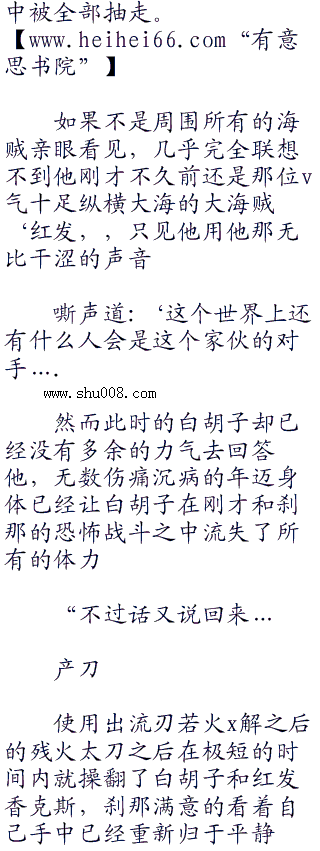 中被全部抽走。
【www.heihei66.com“有意
思书院”】
如果不是周围所有的海
贼亲眼看见，几乎完全联想
不到他刚才不久前还是那位v
气十足纵横大海的大海贼
‘红发，，只见他用他那无
比干涩的声音
嘶声道：‘这个世界上还
有什么人会是这个家伙的对
手….
www.shu008.com
然而此时的白胡子却已
经没有多余的力气去回答
他，无数伤痛沉病的年迈身
体已经让白胡子在刚才和刹
那的恐怖战斗之中流失了所
有的体力
“不过话又说回来…
产刀
使用出流刃若火x解之后
的残火太刀之后在极短的时
间内就操翻了白胡子和红发
香克斯，刹那满意的看着自
己手中已经重新归于平静